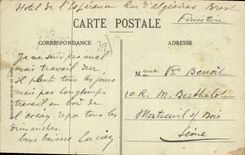 Hotel de l'Espérance Rue d'algésiras Brest
Finistère
CARTE POSTALE
CORRESPONDANCE
ADRESSE
Je ne suis pas mal
mais travail dur
il pleut tous les jours
mais pas longtemps
travail au bord de
l'ocean. repos tous les
dimanches.
bons baisers Lucien
Mme Vve Benoît
10 R. M. Berthelot
Montreuil s/ Bois
Seine